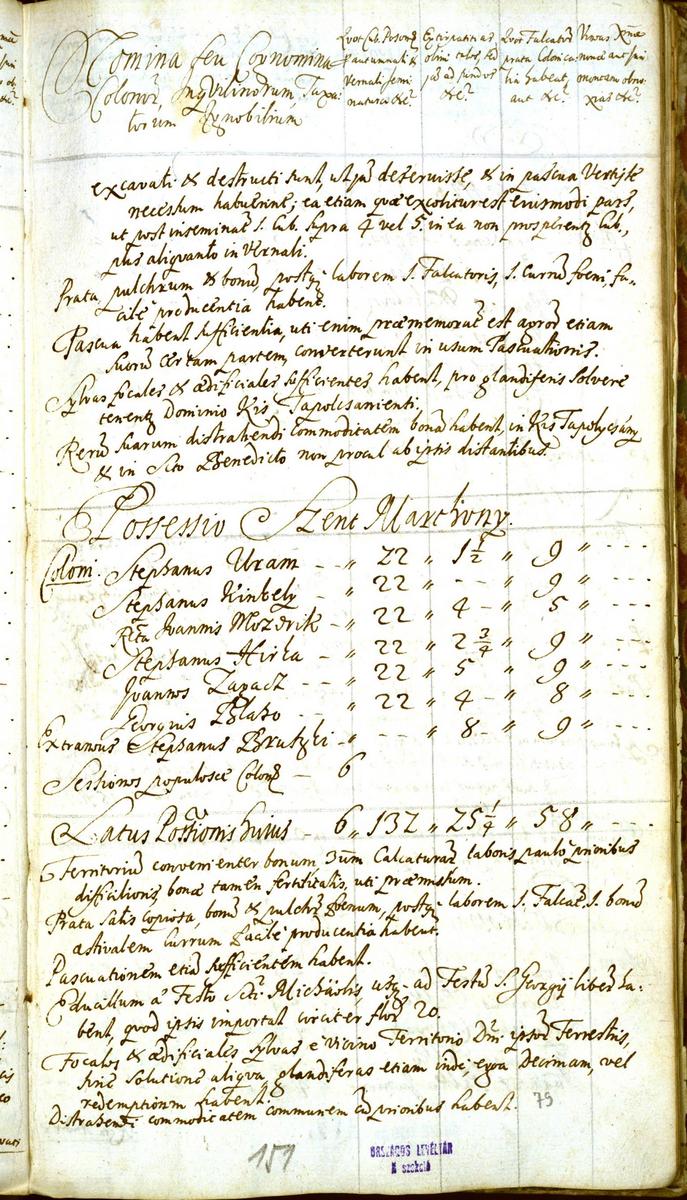 Nomina seu Cognomina
Colonor, Inqvilinorum, Taxa-
torum Ignobilium
Qvot Cub. Poson
p autumnali &
vernali semi
natura &c?
Extirpatitias
olim
ad fundos
&c?
Qvot Falcatorũ
prata Colonica-
lia habent,
aut &c?
Vineas
aut
montem obno-
xias &c?
excavati & destructi sunt, ut jam deseruisse, & in pascua vertisse
necessum habuerint; ea etiam quæ excolitur est ejusmodi pars,
ut post inseminat. 1. Cub. supra 4 vel 5. in ea non prosperent Cub.,
plus aliqvanto in Vernali.
Prata, pulchrum & bonũ, postq laborem 1. Falcatoris, 1. Currũ foeni, fa-
cile producentia habent.
Pascua habent sufficientia, uti enim præmemoratũ est agror etiam
suorũ certam partem, converterunt in usum Pascuationis.
Sylvas focales & ædificiales sufficientes habent, pro glandiferis solvere
tenentr Dominio Kis Tapolcsanienti.
Rerũ suarum distrahendi commoditatem bonã habent, in Kis Tapolycsany
& in Scto Benedicto non procul ab ipsis distantibus.
Possessio Szent Marthony.
Coloni. Stephanus Uram - „ 22 „ 1½ „ 9 „ ---
Stephanus Kinbely - „ 22 „ -- „ 9 „ ---
Rta Joannis Mozdrik - „ 22 „ 4 - „ 5 „ ---
Stephanus Hirka - „ 22 „ 2¾ „ 9 „ ---
Joannes Zapacz -- „ 22 „ 5 „ 9 „ ---
Georgius Blaho -- „ 22 „ 4 - „ 8 „ ---
Extraneus Stephanus Brutzki - „ -- „ 8 - „ 9 „ ---
Sessiones populosæ Colon - 6
Latus Possionis hujus - 6 „ 132 „ 25¼ „ 58 „ ---
Territoriũ convenienter bonum, 3um Calcaturar laboris paulo prioribus
difficilioris, bonæ tamen fertilitatis, uti præmissum.
Prata satis copiosa, bonũ & pulchrũ foenum, postq laborem 1. Falcat. 1. bonũ
æstivalem Currum facile producentia habent.
Pascuationem etiã sufficientem habent.
Educillum a Festo Scti Michaelis usq ad Festũ S. Georgij liberũ ha-
bent, quod ipsis importat circiter flor 20.
Focales & ædificiales sylvas e vicino Territorio Dni ipsor Terrestris,
sine solutione aliqva glandiferas etiam inde, erga Decimam, vel
redemptionem habent.
Distrahendi commoditatem communem cũ prioribus habent.
79
151
ORSZÁGOS LEVÉLTÁR